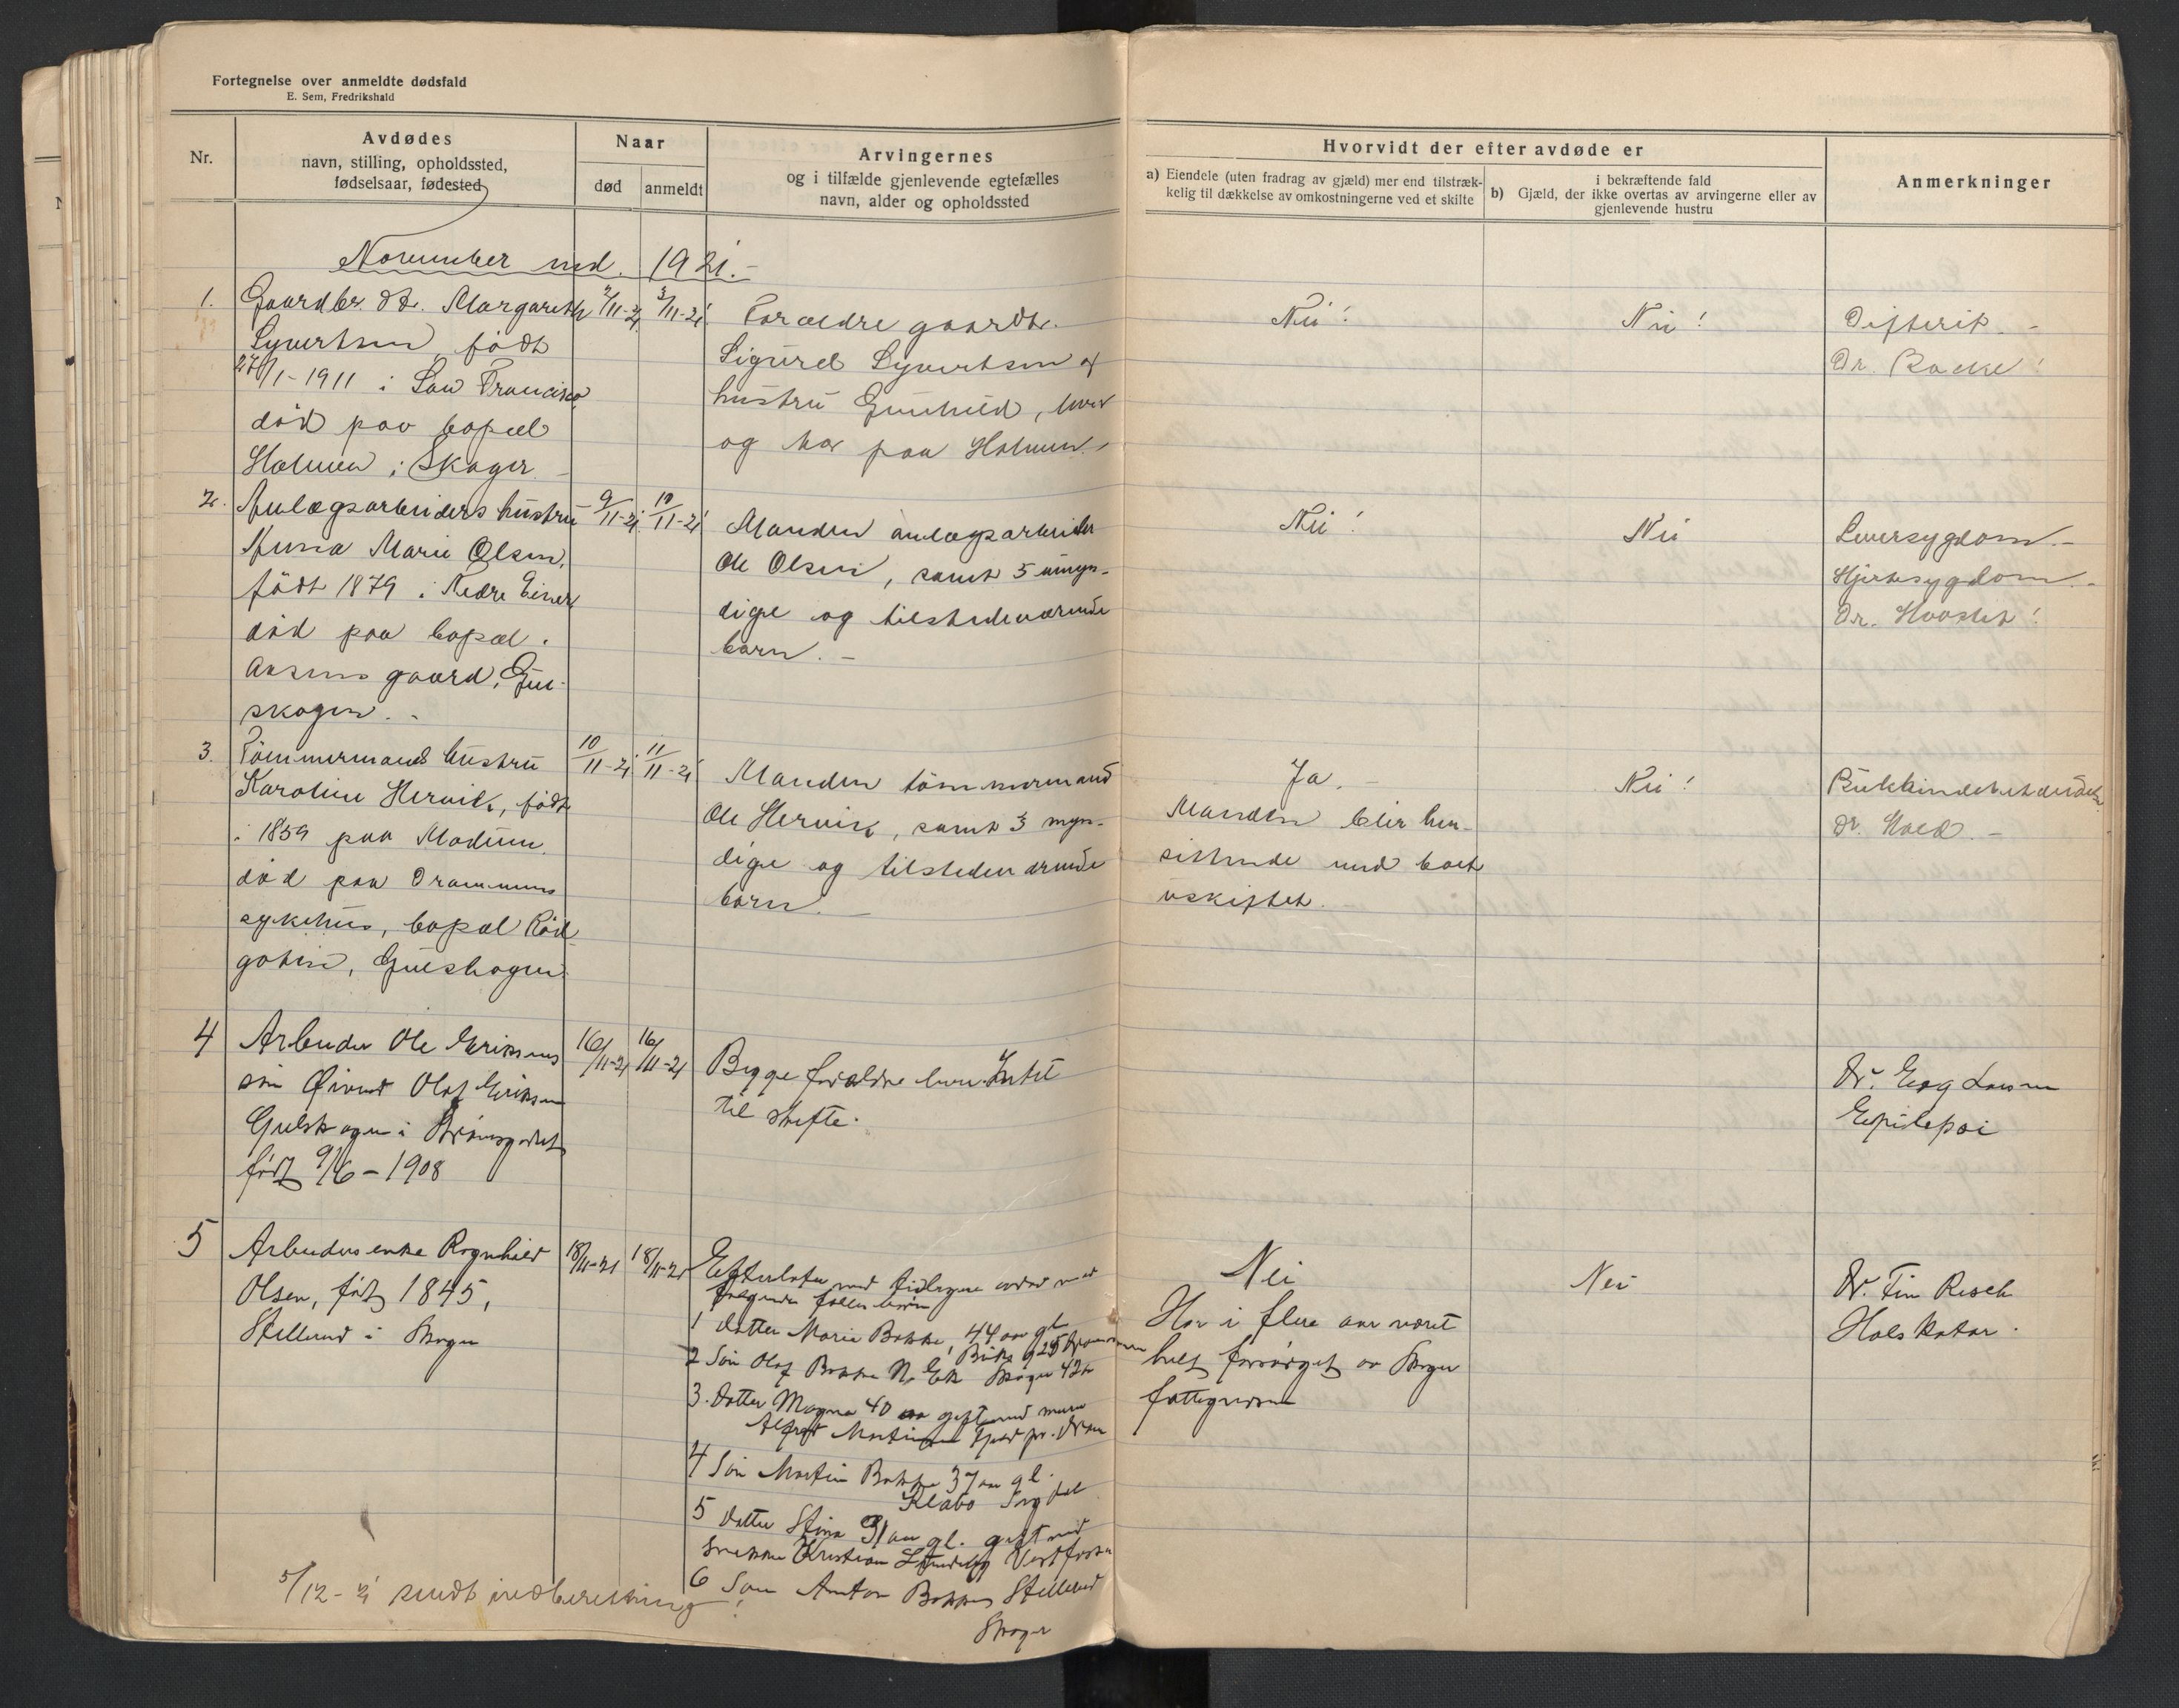 Fortegnelse over anmeldte dødsfald
E. Sem, Fredrikshald
Nr.
Avdødes
navn, stilling, opholdssted,
fødselsaar, fødested
Naar
død
anmeldt
Arvingernes
og i tilfælde gjenlevende egtefælles
navn, alder og opholdssted
Hvorvidt der efter avdøde er
a) Eiendele (uten fradrag av gjæld) mer end tilstræk-
kelig til dækkelse av omkostningerne ved et skifte
b)
i bekræftende fald
Gjæld, der ikke overtas av arvingerne eller av
gjenlevende hustru
Anmerkninger
November md. 1921.-
1.
Gaardbr. dtr. Margareth
Syvertsen født
27/1-1911 i San Francisco,
død paa bopæl
Holmen i Skoger
2/11-21
3/11-21
Forældre gaardbr.
Sigurd Syvertsen og
hustru Gunhild, hver
og bor paa Holmen.
Nei!
Nei!
Difterit. -
Dr. Backe!
2.
Anlægsarbeiders hustru
Anna Marie Olsen,
født 1879 i Nedre Eiker
død paa bopæl.
Aasens gaard, Gul-
skogen. -
9/11-21
10/11-21
Manden anlægsarbeider
Ole Olsen, samt 5 umyn-
dige og tilstedeværende
barn. -
Nei!
Nei
Leversygdom. -
Hjertesygdom. -
Dr.
3.
Tømmermands hustru
Karoline Hervik, født
i 1859 paa Modum.
død paa Drammens
sykehus, bopæl Rød-
goten, Gulskogen.
10/11-21
11/11-21
Manden tømmermand
Ole Hervik, samt 3 myn-
dige og tilstedeværende
barn. -
Ja. -
Manden blir hen-
sittende med boet
uskiftet.
Nei!
Bukhindebetændelse
Dr. Hald. -
4
Arbeider Ole Eriksens
søn Øivind Olaf Eriksen
Gulskogen i
født 9/6-1908
16/11-21
16/11-21
Begge forældre lever. Intet
til skifte.
Dr. Larsen
Epilepsi
5
Arbeiders enke Ragnhild
Olsen, født 1845,
Stellerud i Skoger
18/11-21
18/11-21
Efterlater med tidligere avdød mand
følgende fælles børn
1 Datter Marie Bakke, 44 aar gl
2 Søn Olaf Bakke N. Ek Skoger 42 aar
3. Datter Magna 40 aar gift med murer
Alfred Martinsen
4 Søn Martin Bakke 37 aar gl.
5 Datter Stina 31 aar gl. gift med
snekker Kristian Vestfossen
6 Søn Anton Bakke Stellerud
Skoger
Nei
Har i flere aar været
helt forsørget av Skoger
fattigvæsen
Nei
Dr. Finn
Halskatar.
5/12-21 sendt indberetning!